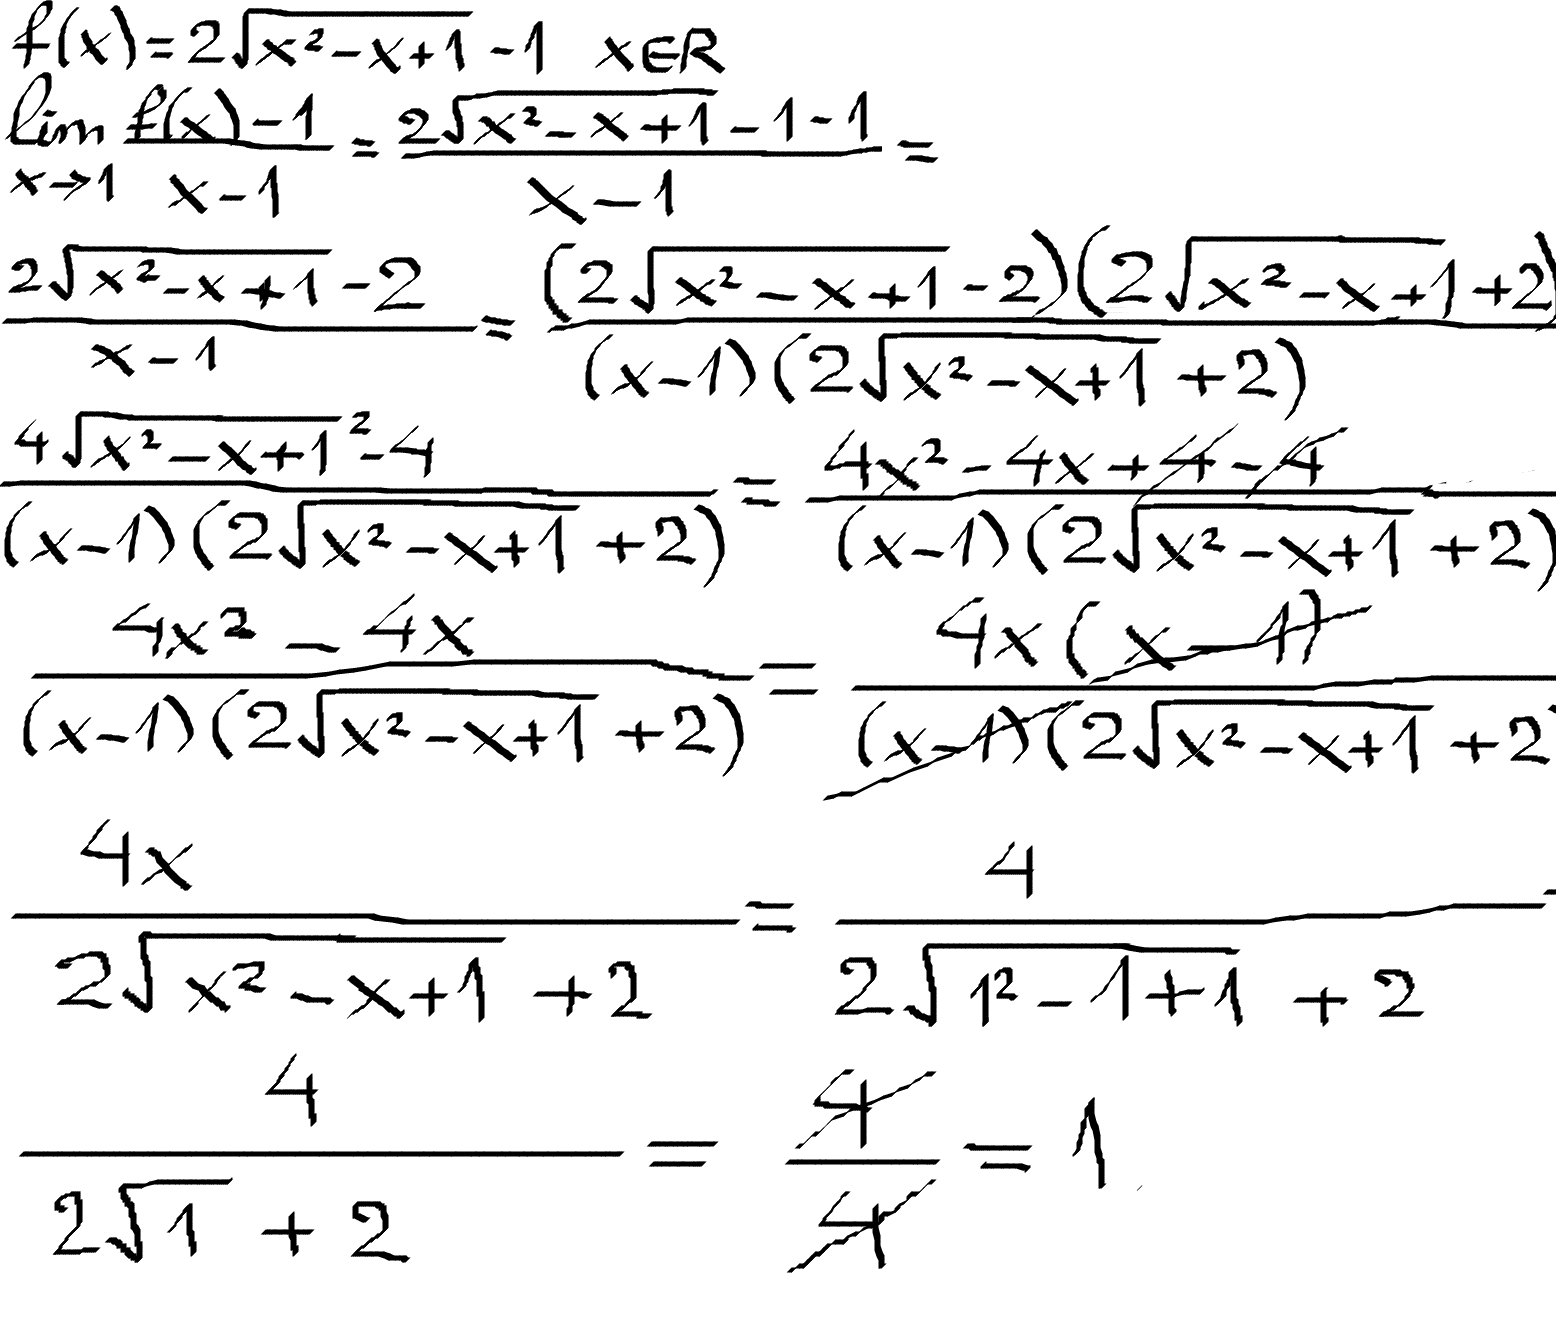 f(x) = 2√(x² - x + 1) - 1 x ∈ R
lim x→1 (f(x) - 1)/(x - 1) = (2√(x² - x + 1) - 1 - 1)/(x - 1) =
(2√(x² - x + 1) - 2)/(x - 1) = ((2√(x² - x + 1) - 2)(2√(x² - x + 1) + 2))/((x - 1)(2√(x² - x + 1) + 2))
(4√(x² - x + 1)² - 4)/((x - 1)(2√(x² - x + 1) + 2)) = (4x² - 4x + 4 - 4)/((x - 1)(2√(x² - x + 1) + 2))
(4x² - 4x)/((x - 1)(2√(x² - x + 1) + 2)) = (4x(x - 1))/((x - 1)(2√(x² - x + 1) + 2
(4x)/(2√(x² - x + 1) + 2) = 4/(2√(1² - 1 + 1) + 2)
4/(2√1 + 2) = 4/4 = 1